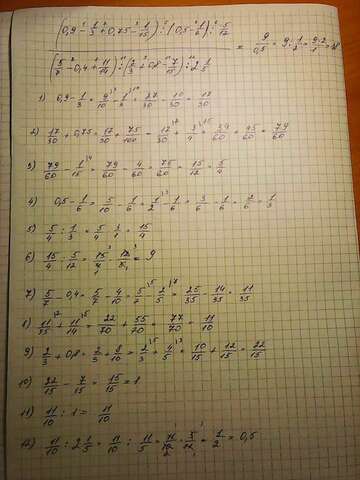 (0,9 - 1/3 + 0,75 - 1/15) : (0,5 - 1/6) : 5/12
(5/7 - 0,4 + 11/14) : (2/3 + 0,8 - 7/15) : 2 1/5
= 9/0,5 = 9 : 1/2 = 9·2/1 = 18
1) 0,9 - 1/3 = 9/10 - 1/3 = 27/30 - 10/30 = 17/30
2) 17/30 + 0,75 = 17/30 + 75/100 = 17/30 + 3/4 = 34/60 + 45/60 = 79/60
3) 79/60 - 1/15 = 79/60 - 4/60 = 75/60 = 15/12 = 5/4
4) 0,5 - 1/6 = 5/10 - 1/6 = 1/2 - 1/6 = 3/6 - 1/6 = 2/6 = 1/3
5) 5/4 : 1/3 = 5/4 · 3/1 = 15/4
6) 15/4 : 5/12 = 15/4 · 12/5 = 9
7) 5/7 - 0,4 = 5/7 - 4/10 = 5/7 - 2/5 = 25/35 - 14/35 = 11/35
8) 11/35 + 11/14 = 22/70 + 55/70 = 77/70 = 11/10
9) 2/3 + 0,8 = 2/3 + 8/10 = 2/3 + 4/5 = 10/15 + 12/15 = 22/15
10) 22/15 - 7/15 = 15/15 = 1
11) 11/10 : 1 = 11/10
12) 11/10 : 2 1/5 = 11/10 : 11/5 = 11/10 · 5/11 = 1/2 = 0,5